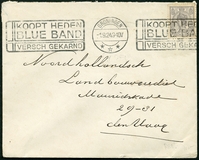 KOOPT HEDEN
BLUE BAND
VERSCH GEKARND
GRONINGEN
KOOPT HEDEN
BLUE BAND
VERSCH GEKARND
Noordhollandsch
Landbouwcrediet
Mauritskade
29-31
den Haag